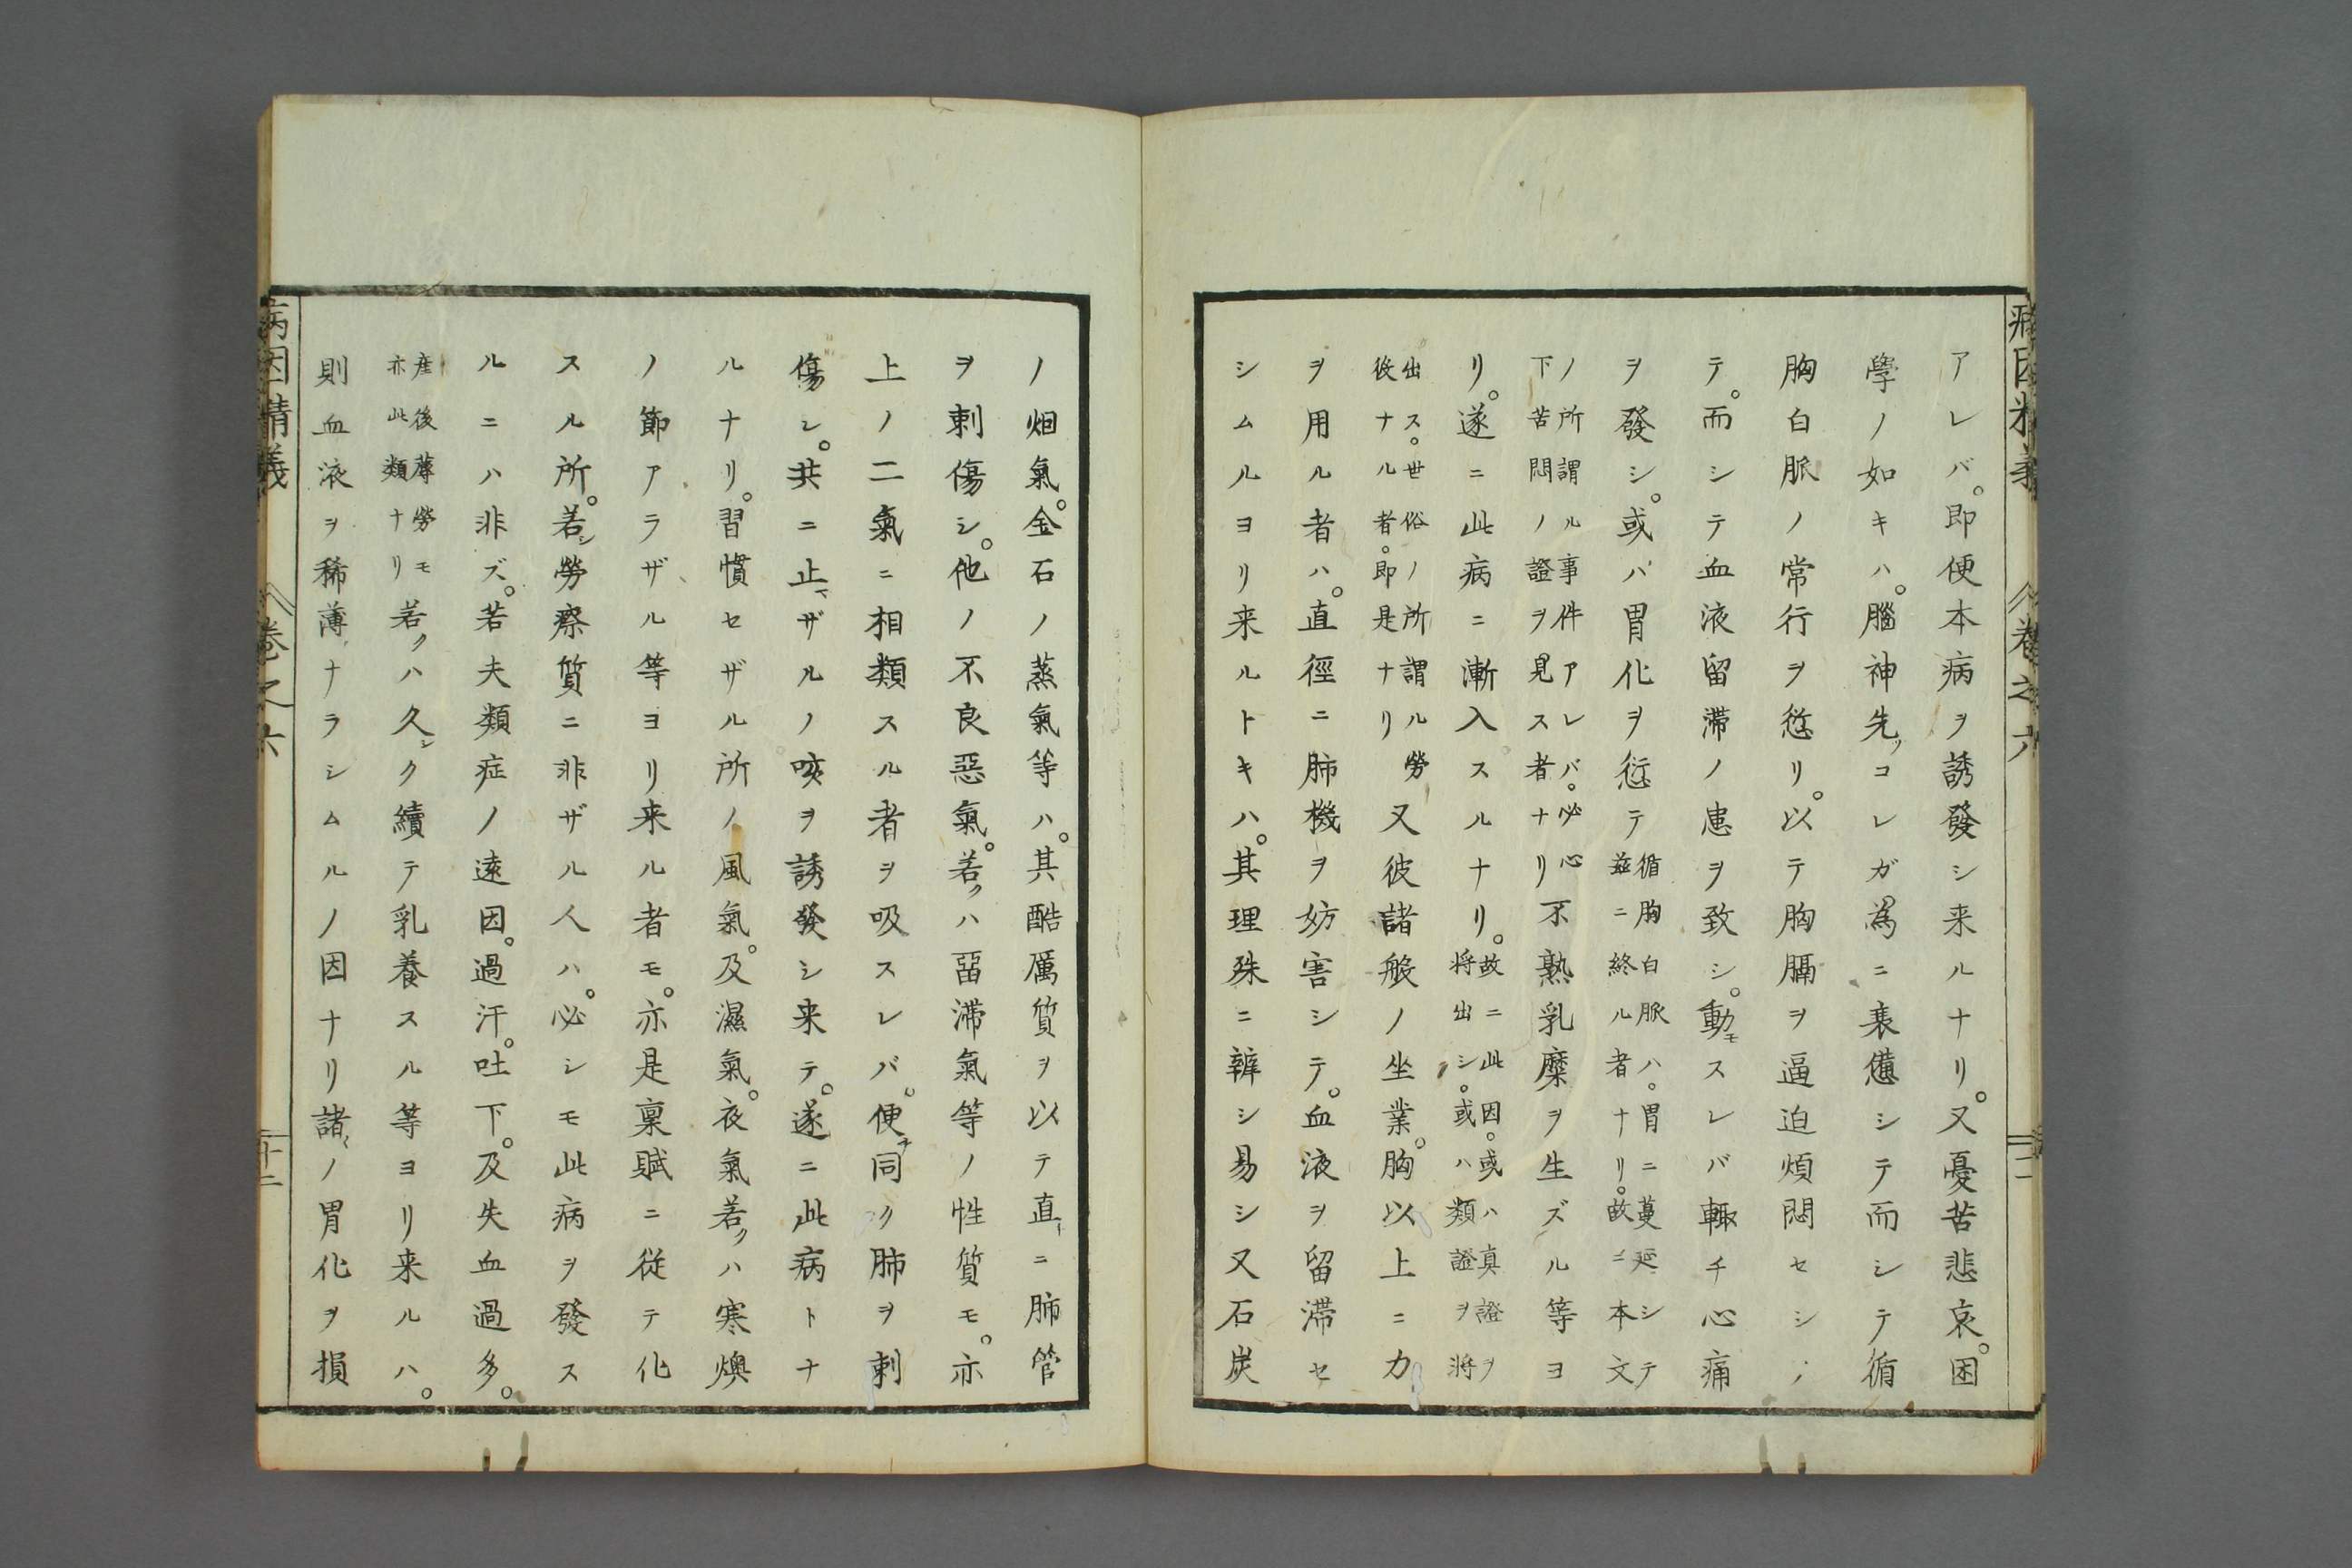 アレバ。即便本病ヲ誘發シ来ルナリ。又憂苦悲哀。困
學ノ如キハ。腦神先ツコレガ為ニ衰憊シテ而シテ循
胸白脈ノ常行ヲ愆リ。以テ胸膈ヲ逼迫煩悶セシメ
テ。而シテ血液留滞ノ患ヲ致シ。動モスレバ輙チ心痛
ヲ發シ。或バ胃化ヲ愆テ循胸白脈ハ。胃ニ蔓延シテ
茲ニ終ル者ナリ。故ニ本文
ノ所謂ル事件アレバ。必心
下苦悶ノ證ヲ見ス者ナリ不熟乳糜ヲ生ズル等ヨ
リ。遂ニ此病ニ漸入スルナリ。故ニ此因。或ハ真證ヲ
将出シ。或ハ類證ヲ将
出ス。世俗ノ所謂ル勞
役ナル者。即是ナリ又彼諸般ノ坐業。胸以上ニ力
ヲ用ル者ハ。直徑ニ肺機ヲ妨害シテ。血液ヲ留滞セ
シムルヨリ来ルトキハ。其理殊ニ辨シ易シ又石炭
病因精義 巻之六
ノ烟氣。金石ノ蒸氣等ハ。其酷厲質ヲ以テ直ニ肺管
ヲ刺傷シ。他ノ不良惡氣。若クハ畱滞氣等ノ性質モ。亦
上ノ二氣ニ相類スル者ヲ吸スレバ。便チ同ク肺ヲ刺
傷シ。共ニ止マザルノ咳ヲ誘發シ来テ。遂ニ此病トナ
ルナリ。習慣セザル所ノ風氣。及濕氣。夜氣若クハ寒燠
ノ節アラザル等ヨリ来ル者モ。亦是稟賦ニ從テ化
スル所。若シ勞瘵質ニ非ザル人ハ。必シモ此病ヲ發ス
ルニハ非ズ。若夫類症ノ遠因。過汗。吐下。及失血過多。
産後蓐勞モ
亦此類ナリ若クハ久シク續テ乳養スル等ヨリ来ルハ。
則血液ヲ稀薄ナラシムルノ因ナリ諸ノ胃化ヲ損
病因精義 巻之六 十二